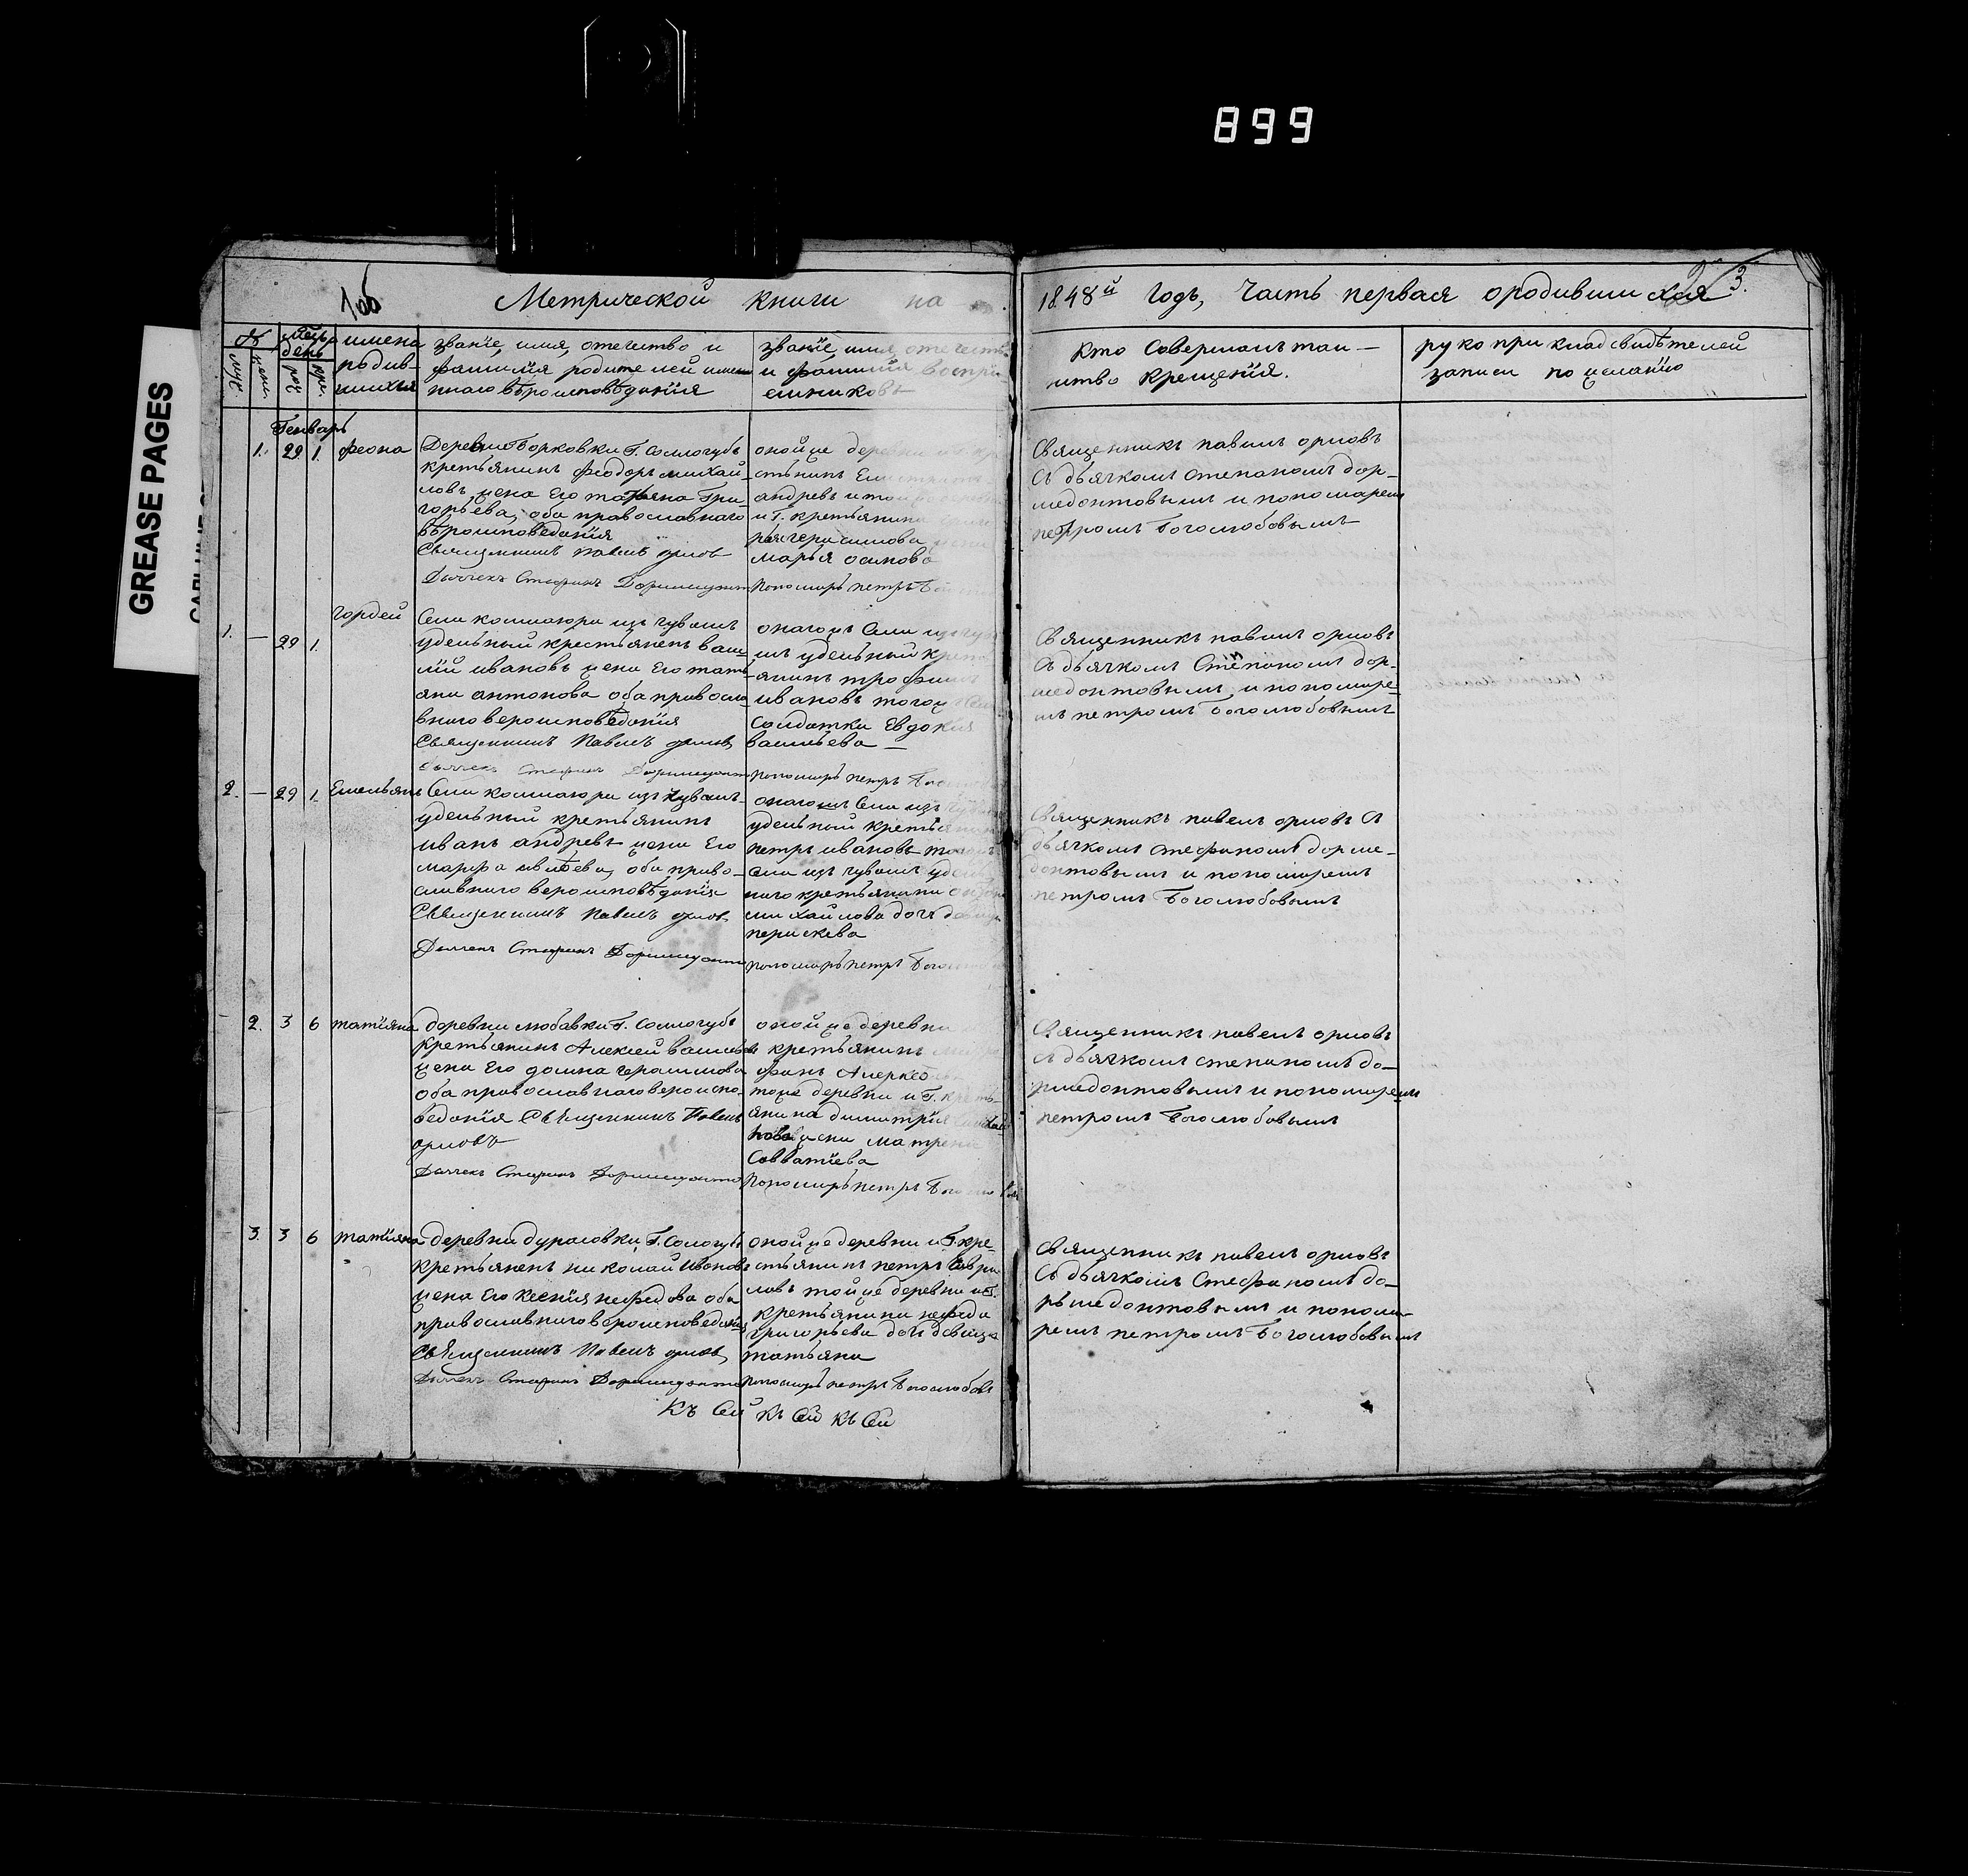 899
GREASE PAGES
Метрической книги на
1848й годъ, Часть первая ородившихся
3.
№
муж.
жен.
день
имена
родив-
шихся
званïе, имя, отечество и
фамилïя родителей
вѣроисповѣданïя
званïе, имя, отечест
и фамилïя воспрï
емниковъ
Кто Совершалъ таи-
нство Крещенïя.
рукоприкладсвидѣтелей
записи по желанïю
Генварь
1. 29 1. феона
Деревни Борковки Г. Сологубъ
крестьянинъ феодоръ михай-
ловъ жена Его татьяна Гри-
горьева, оба православнаго
вѣроисповедания
Священникъ Павелъ орлов
Дьячекъ Стефанъ Дормидонто
оной же деревни
стьнинъ
андревъ и той
и Г. крестьянина
герасимова
марья осипова
Пономарь петръ Бо
Священникъ павилъ орловъ
Съ дьячкомъ степаномъ дор-
медонтовымъ и пономарем
петромъ Боголюбовымъ
1. — 29 1. Гордей
Села кошлоюри изъ чувашъ
удельный крестьянинъ васи
лïй ивановъ жена Его тать-
яна антонова оба правосла
внаго вероисповѣданïя
Священникъ Павелъ орлов
Дьячекъ Стефанъ Дормидонто
онагожъ Села изъ чув
шъ удельный крест
янинъ трофимъ
ивановъ тогож
Солдатка Евдокия
васильева —
Пономарь петръ Бог
Священникъ павилъ орловъ
Съ дьячкомъ Степаномъ дор-
медонтовымъ, и пономаре-
мъ петромъ Боголюбовымъ
2. — 29 1. Емельянъ
Села кошлоюри изъ чувашъ
удельный крестьянинъ
иванъ андревъ жена Его
марфа ивлѣева, оба право-
славнаго вероисповѣданïя
Священникъ Павелъ орлов
Дьячекъ Стефанъ Дормидонто
онагожъ Села изъ чува
удельный крестьянин
петръ ивановъ тогожъ
Села изъ чувашъ удел
наго крестьянина
михайлова дочь девица
парискева
Пономарь петръ Бого
Священникъ павелъ орловъ Съ
дьячкомъ стефаномъ дорме-
донтовымъ и пономаремъ
петромъ Боголюбовымъ
2. 3 6 татïяна
деревни любавки Г. Сологубъ
Крестьянинъ Алексей василь
жена Его домна герасимова
оба православнаго вероиспо-
веданïя Священникъ Павелъ
орловъ
Дьячекъ Стефанъ Дормидонто
оной же деревни
крестьянинъ
тойже деревни и Г. кресть-
янина димитрïя
жена матрена
Савватïева
Пономарь петръ Боголюбов
Священникъ павелъ орловъ
Съ дьячкомъ степаномъ до-
рмедонтовымъ и пономаремъ
петромъ Боголюбовымъ
3. 3 6 татïяна
деревни дурасовки, Г. Сологубъ
Крестьянинъ николай Ивановъ
жена Его ксенïя нефедова оба
православнаго вероисповеданïя
Священникъ Павелъ орлов
Дьячекъ Стефанъ Дормидонто
оной же деревни и Г. кре-
стьянинъ петръ Гаври
ловъ тойже деревни и Г.
Крестьянина нефеда
григорьева дочь девица
татьяна
Пономарь петръ Боголюбовъ
Священникъ павелъ орловъ
Съ дьячкомъ Стефаномъ до-
рмедонтовымъ и понома-
ремъ петромъ Боголюбовымъ
Къ Сей къ Сей къ Сей